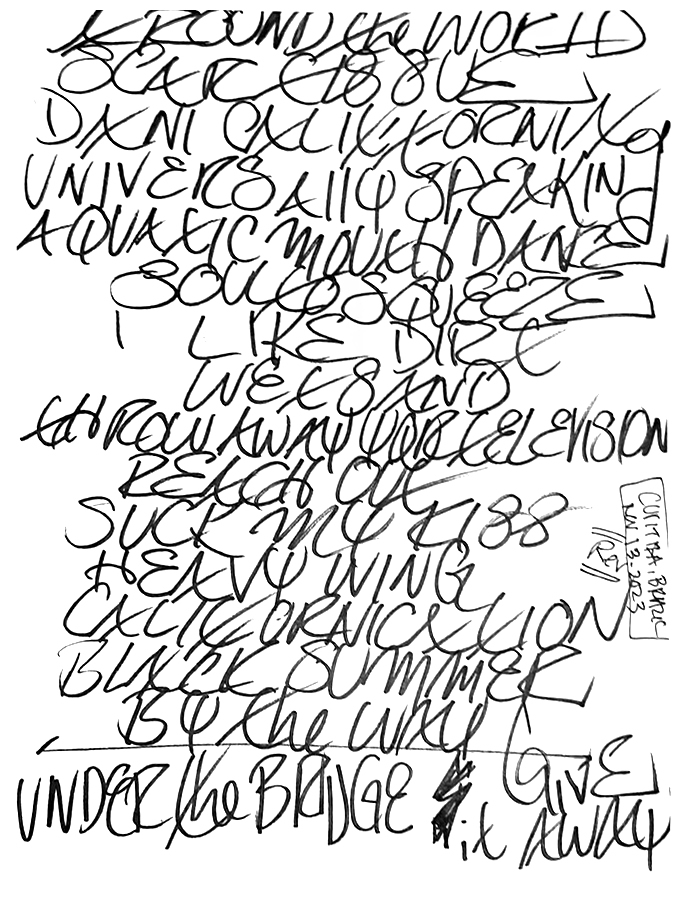 AROUND the WORLD
SCAR TISSUE
DANI CALIFORNIA
UNIVERSAlly SPEAKING
AQUATIC MOUTH DANCE
SOUL TO SQUEEZE
I LIKE DIRT
WET SAND
tHROW AWAY YOUR TELEVISION
REACH OUT
SUCK MY KISS
HEAVY WING
CALIFORNICATION
BLACK SUMMER
BY the WAY
UNDER the BRIDGE
GIVE
it AWAY
CURITIBA, BRAZIL
NOV 13.2023